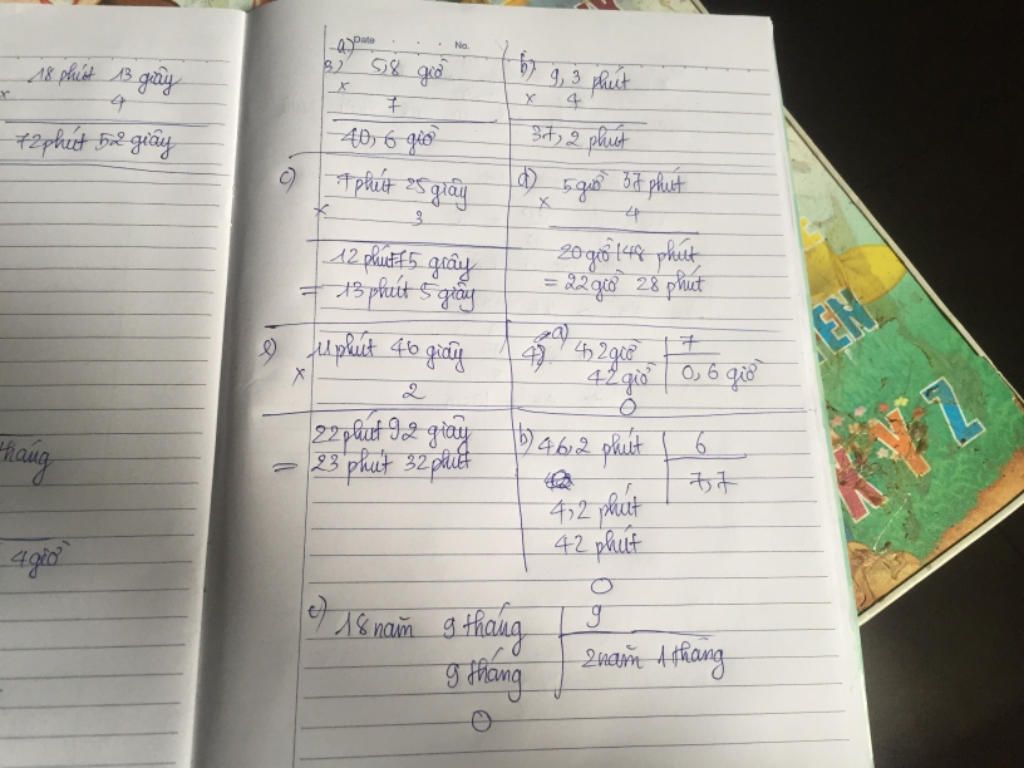 18 phút 13 giây
x 4
72 phút 52 giây
tháng
4 giờ
Date No.
a)
3, 5,8 giờ
x
7
40,6 giờ
b) 9,3 phút
x 4
37,2 phút
c) 7 phút 25 giây
x 3
12 phút 75 giây
= 13 phút 5 giây
d) 5 giờ 37 phút
x 4
20 giờ 148 phút
= 22 giờ 28 phút
e) 11 phút 46 giây
x 2
22 phút 92 giây
= 23 phút 32 phút
a)
4) 4,2 giờ 7
42 giờ 0,6 giờ
0
b) 46,2 phút 6
7,7
4,2 phút
42 phút
0
c) 18 năm 9 tháng 9
9 tháng 2 năm 1 tháng
0
EN
K Y Z